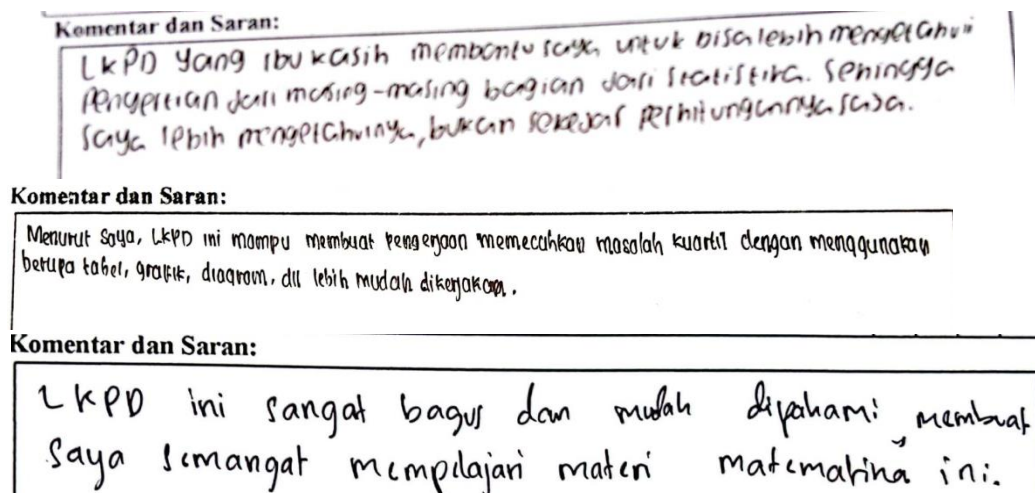 Komentar dan Saran:
LKPD yang ibu kasih membantu saya untuk bisa lebih mengetahui
Pengertian dari masing-masing bagian dari statistika. Sehingga
saya lebih mengetahuinya, bukan sekejar perhitungannya saja.
Komentar dan Saran:
Menurut saya, LKPD ini mampu membuat pengerjaan memecahkan masalah kuartil dengan menggunakan
berupa tabel, grafik, diagram, dll lebih mudah dikerjakan.
Komentar dan Saran:
LKPD ini sangat bagus dan mudah dipahami, membuat
saya semangat mempelajari materi matematika ini.